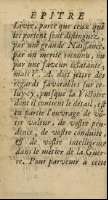 EPITRE
Livre, parce que ceux qui
les portent sont distinguez,
par une grande Naissance,
par un merite reconnu, ou
par une faveur éclatante,
mais V. A. doit jetter des
regards favorables sur ce-
luy-cy, puisque la Victoire
dont il contient le détail, est
en partie l'ouvrage de vô-
tre valeur, de vostre pru-
dence, de vostre conduite
& de vostre intelligence
dans le métier de la Guer-
re. Pour parvenir à cette